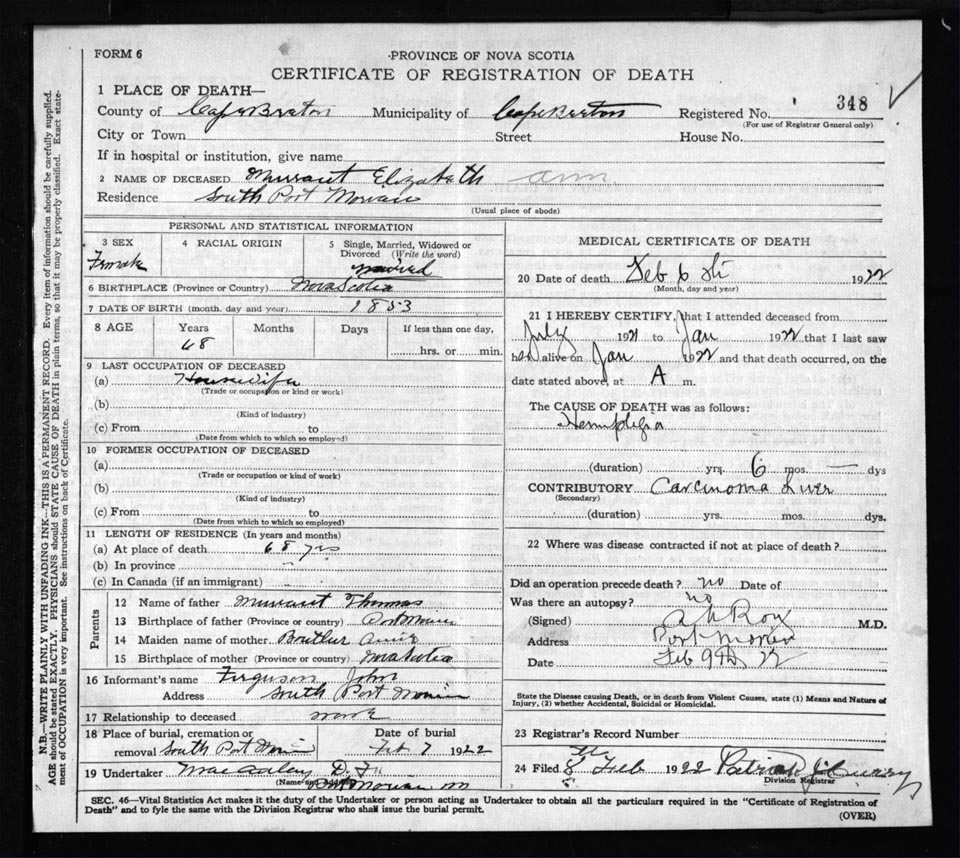 FORM 6
PROVINCE OF NOVA SCOTIA
CERTIFICATE OF REGISTRATION OF DEATH
1 PLACE OF DEATH—
County of Cape Breton Municipality of Cape Breton Registered No. 348
(For use of Registrar General only)
City or Town Street House No.
If in hospital or institution, give name
2 NAME OF DECEASED Elizabeth ann
Residence South Port Morien
(Usual place of abode)
PERSONAL AND STATISTICAL INFORMATION
3 SEX 4 RACIAL ORIGIN 5 Single, Married, Widowed or
Divorced (Write the word)
Female
6 BIRTHPLACE (Province or Country) Nova Scotia
7 DATE OF BIRTH (month, day and year) 1853
8 AGE Years Months Days If less than one day,
68 hrs. or min.
9 LAST OCCUPATION OF DECEASED
(a) Housewife
(Trade or occupation or kind or work)
(b)
(Kind of industry)
(c) From to
(Date from which to which so employed)
10 FORMER OCCUPATION OF DECEASED
(a)
(Trade or occupation or kind of work)
(b)
(Kind of industry)
(c) From to
(Date from which to which so employed)
11 LENGTH OF RESIDENCE (In years and months)
(a) At place of death 68 yrs
(b) In province
(c) In Canada (if an immigrant)
Parents
12 Name of father Thomas
13 Birthplace of father (Province or country) Port Morien
14 Maiden name of mother
15 Birthplace of mother (Province or country) Nova Scotia
16 Informant's name Ferguson John
Address South Port Morien
17 Relationship to deceased
18 Place of burial, cremation or Date of burial
removal South Port Morien Feb 7 1922
19 Undertaker
(Name and address)
MEDICAL CERTIFICATE OF DEATH
20 Date of death Feb 6 th 1922
(Month, day and year)
21 I HEREBY CERTIFY, that I attended deceased from
July 1921 to Jan 1922 that I last saw
her alive on Jan 1922 and that death occurred, on the
date stated above, at A m.
The CAUSE OF DEATH was as follows:
Hemiplegia
(duration) yrs. 6 mos. — dys
CONTRIBUTORY Carcinoma Liver
(Secondary)
(duration) yrs. mos. dys.
22 Where was disease contracted if not at place of death?
Did an operation precede death? no Date of
Was there an autopsy? no
(Signed) M.D.
Address Port Morien
Date Feb 9th 22
State the Disease causing Death, or in death from Violent Causes, state (1) Means and Nature of
Injury, (2) whether Accidental, Suicidal or Homicidal.
23 Registrar's Record Number
24 Filed 8 Feb 1922
Division Registrar
SEC. 46—Vital Statistics Act makes it the duty of the Undertaker or person acting as Undertaker to obtain all the particulars required in the "Certificate of Registration of
Death" and to fyle the same with the Division Registrar who shall issue the burial permit.
(OVER)
N.B.—WRITE PLAINLY WITH UNFADING INK—THIS IS A PERMANENT RECORD. Every item of information should be carefully supplied.
AGE should be stated EXACTLY. PHYSICIANS should STATE CAUSE OF DEATH in plain terms, so that it may be properly classified. Exact state-
ment of OCCUPATION is very important. See instructions on back of Certificate.